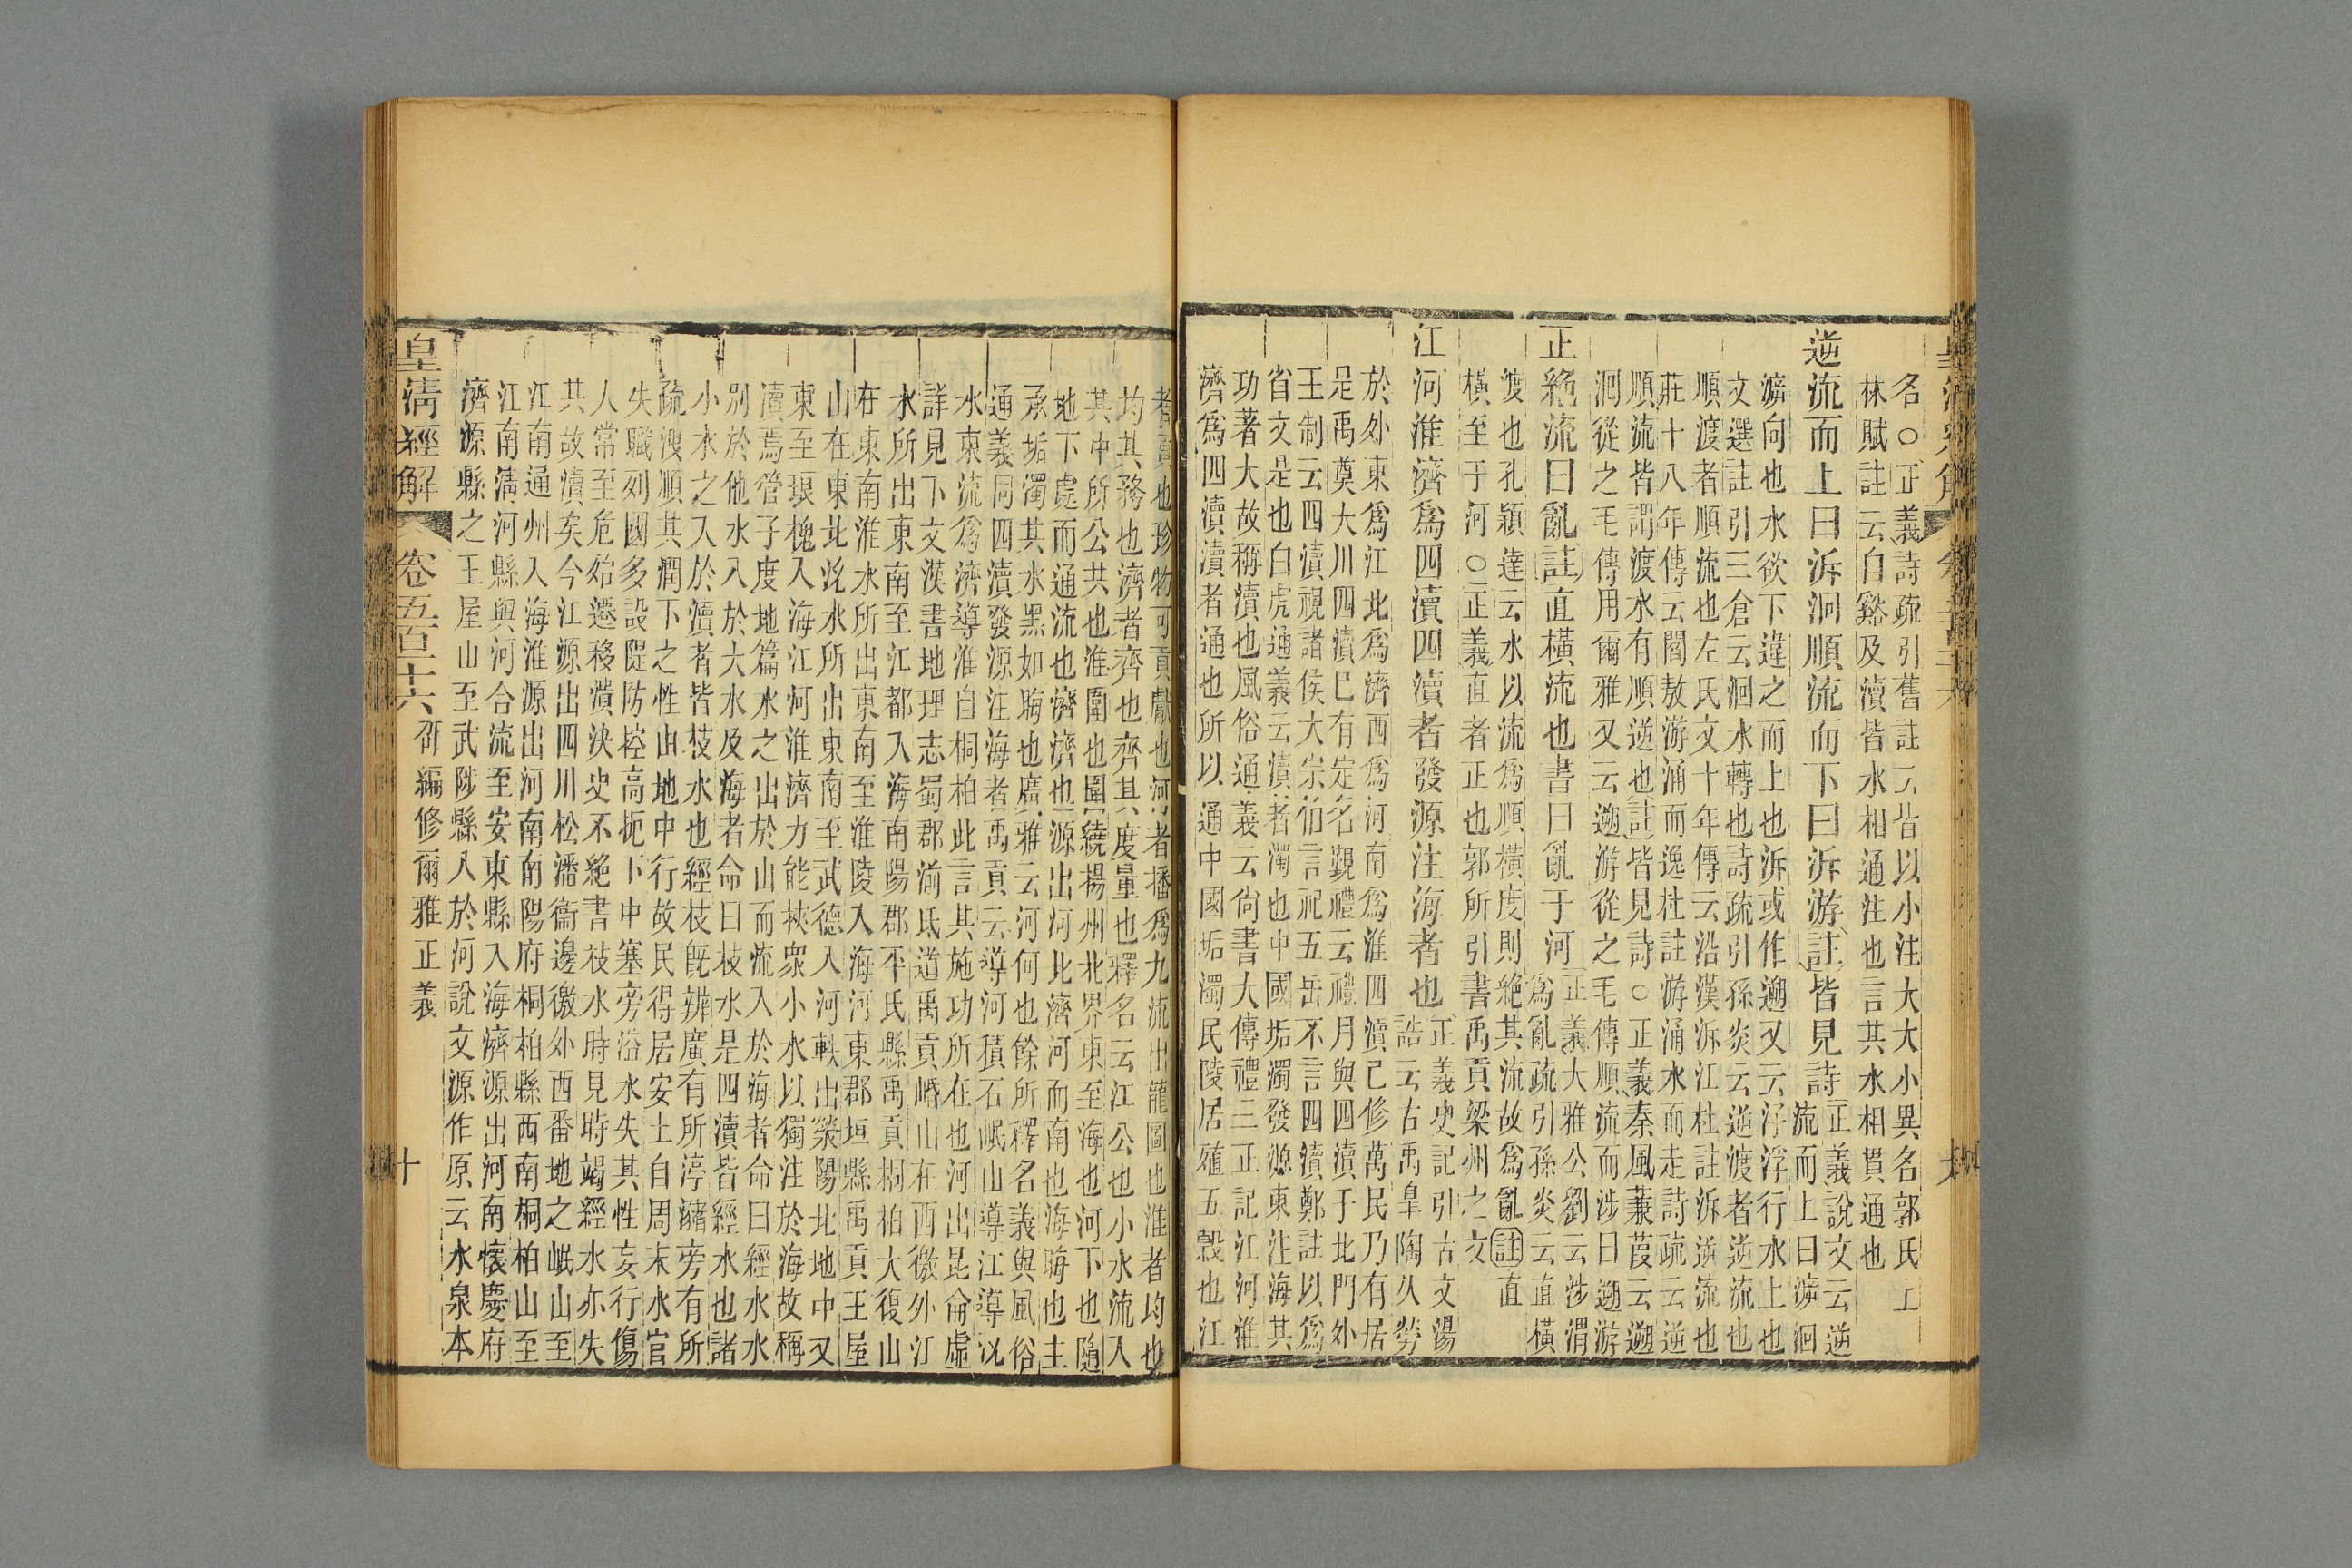 名○正義詩疏引舊註云皆以小注大大小異名郭氏上
林賦註云自谿及瀆皆水相通注也言其水相貫通也
逆流而上曰泝洄順流而下曰泝游註皆見詩正義說文云逆
流而上曰㴑洄
㴑向也水欲下違之而上也泝或作遡又云浮浮行水上也
文選註引三倉云洄水轉也詩疏引孫炎云逆渡者逆流也
順渡者順流也左氏文十年傳云沿漢泝江杜註泝逆流也
莊十八年傳云閻敖游涌而逸杜註游涌水而走詩疏云逆
順流皆謂渡水有順逆也註皆見詩○正義秦風蒹葭云遡
洄從之毛傳用爾雅又云遡游從之毛傳順流而涉曰遡游
正絶流曰亂註直橫流也書曰亂于河正義大雅公劉云涉渭
爲亂疏引孫炎云直橫
渡也孔穎達云水以流爲順橫度則絶其流故爲亂註直
橫至于河○正義直者正也郭所引書禹貢梁州之文
江河淮濟爲四瀆四瀆者發源注海者也正義史記引古文湯
誥云古禹皐陶久勞
於外東爲江北爲濟西爲河南爲淮四瀆已修萬民乃有居
是禹奠大川四瀆巳有定名覲禮云禮月與四瀆于北門外
王制云四瀆視諸侯大宗伯言祀五岳不言四瀆鄭註以爲
省文是也白虎通義云瀆者濁也中國垢濁發源東注海其
功著大故稱瀆也風俗通義云尙書大傳禮三正記江河淮
濟爲四瀆瀆者通也所以通中國垢濁民陵居殖五穀也江
者貢也珍物可貢獻也河者播爲九流出龍圖也淮者均也
均其務也濟者齊也齊其度量也釋名云江公也小水流入
其中所公共也淮圍也圍繞揚州北界東至海也河下也隨
地下處而通流也濟濟也源出河北濟河而南也海晦也主
承垢濁其水黑如晦也廣雅云河何也餘所釋名義與風俗
通義同四瀆發源注海者禹貢云導河積石岷山導江導沇
水東流爲濟導淮自桐柏此言其施功所在也河出昆侖虛
詳見下文漢書地理志蜀郡湔氐道禹貢㟭山在西徼外江
水所出東南至江都入海南陽郡平氏縣禹貢桐柏大復山
在東南淮水所出東南至淮陵入海河東郡垣縣禹貢王屋
山在東北沇水所出東南至武德入河軼出滎陽北地中又
東至琅槐入海江河淮濟力能挾衆小水以獨注於海故稱
瀆焉管子度地篇水之出於山而流入於海者命曰經水水
別於他水入於大水及海者命曰枝水是四瀆皆經水也諸
小水之入於瀆者皆枝水也經枝旣辨廣有所渟瀦旁有所
疏洩順其潤下之性由地中行故民得居安土自周末水官
失職列國多設隄防控高扼卜中塞旁溢水失其性妄行傷
人常至危殆遷移潰決史不絶書枝水時見時竭經水亦失
其故瀆矣今江源出四川松潘衞邊徼外西番地之岷山至
江南通州入海淮源出河南南陽府桐柏縣西南桐柏山至
江南淸河縣與河合流至安東縣入海濟源出河南懷慶府
濟源縣之王屋山至武陟縣入於河說文源作原云水泉本
皇淸經解 卷五百十六 邵編修爾雅正義 十